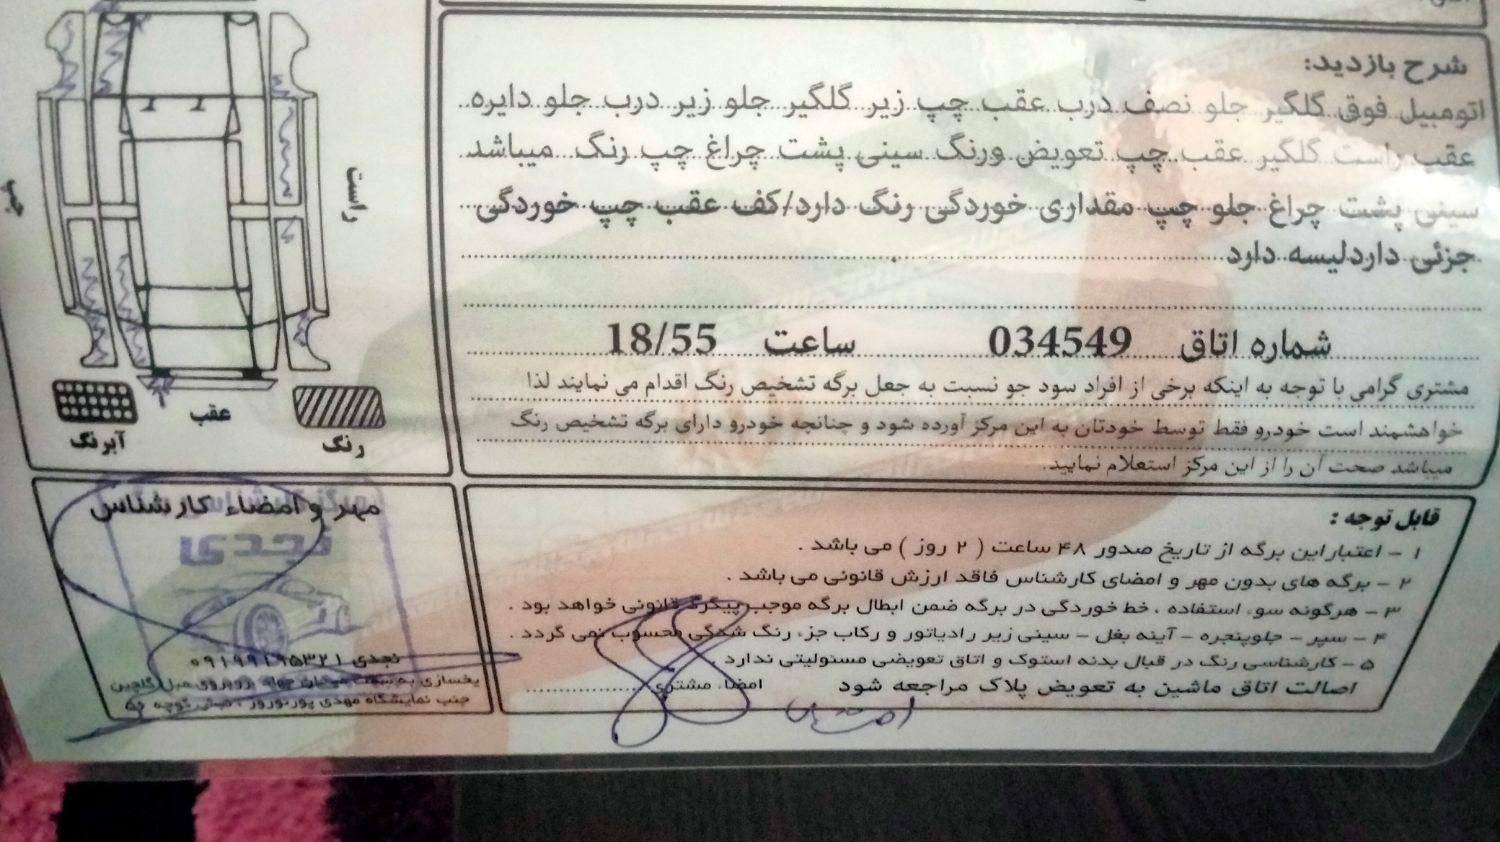 شرح بازدید:
اتومبیل فوق گلگیر جلو نصف درب عقب چپ زیر گلگیر جلو زیر درب جلو دایره
عقب راست گلگیر عقب چپ تعویض ورنگ سینی پشت چراغ چپ رنگ میباشد
سینی پشت چراغ جلو چپ مقداری خوردگی رنگ دارد/کف عقب چپ خوردگی
جزئی داردلیسه دارد
شماره اتاق 034549 ساعت 18/55
مشتری گرامی با توجه به اینکه برخی از افراد سود جو نسبت به جعل برگه تشخیص رنگ اقدام می نمایند لذا
خواهشمند است خودرو فقط توسط خودتان به این مرکز آورده شود و چنانچه خودرو دارای برگه تشخیص رنگ
میباشد صحت آن را از این مرکز استعلام نمایید.
راست
چپ
عقب
رنگ
آبرنگ
قابل توجه :
۱ - اعتبار این برگه از تاریخ صدور ۴۸ ساعت ( ۲ روز ) می باشد .
۲ - برگه های بدون مهر و امضای کارشناس فاقد ارزش قانونی می باشد .
۳ - هرگونه سوء استفاده ، خط خوردگی در برگه ضمن ابطال برگه موجب پیگرد قانونی خواهد بود .
۴ - سپر - جلوپنجره - آینه بغل - سینی زیر رادیاتور و رکاب جزء رنگ شدگی محسوب نمی گردد .
۵ - کارشناسی رنگ در قبال بدنه استوک و اتاق تعویضی مسئولیتی ندارد
اصالت اتاق ماشین به تعویض پلاک مراجعه شود امضاء مشتری
مهر و امضاء کارشناس
مرکز کارشناسی
نجدی
نجدی ۰۹۱۹۹۱۹۵۳۲۱